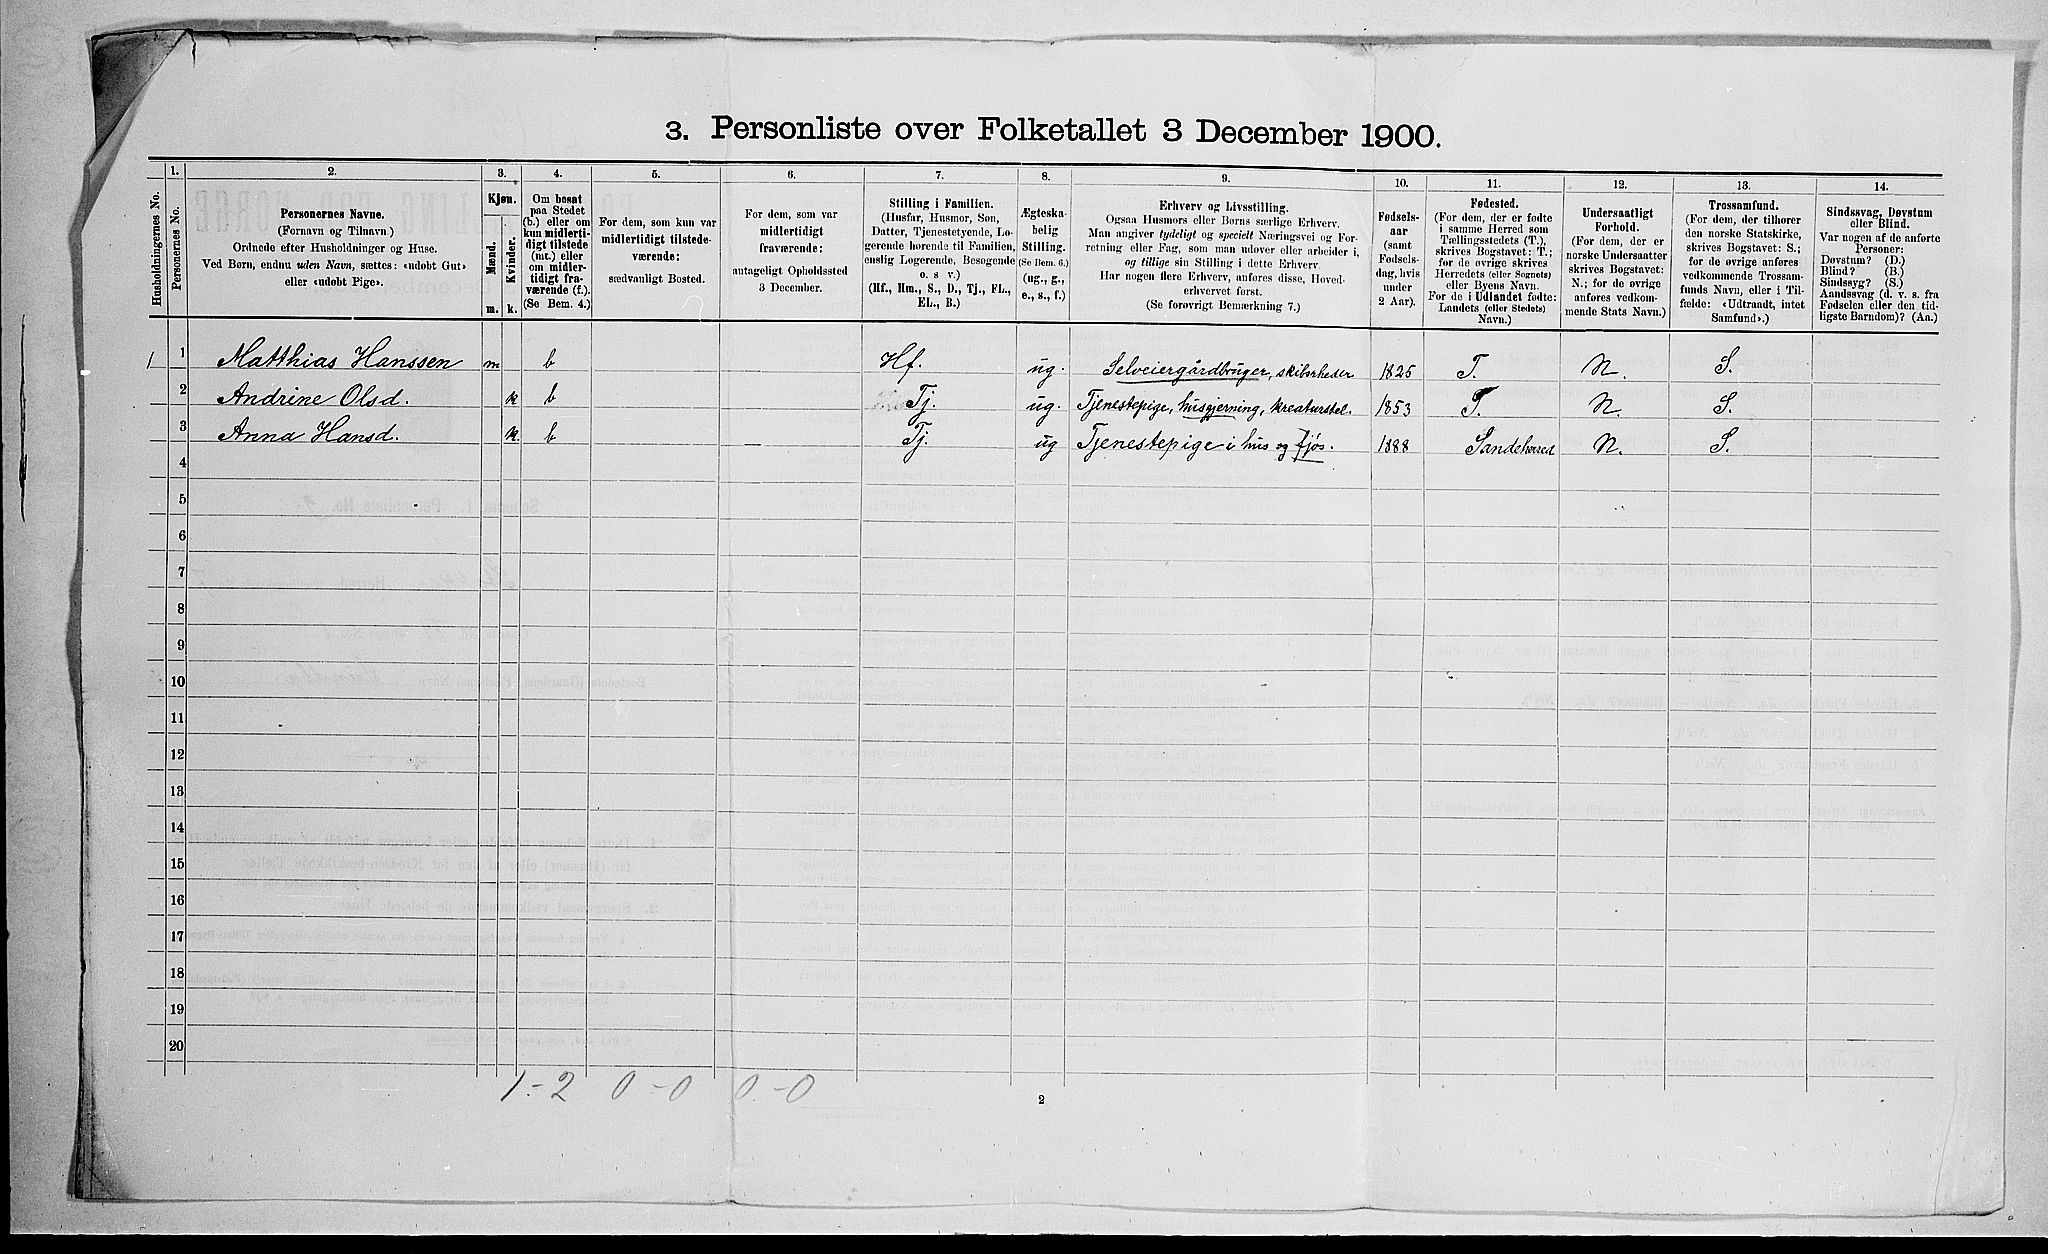 3. Personliste over Folketallet 3 December 1900.
1. 2. 3. 4. 5. 6. 7. 8. 9. 10. 11. 12. 13. 14.
Husholdningernes No.
Personernes No.
Personernes Navne.
(Fornavn og Tilnavn.)
Ordnede efter Husholdninger og Huse.
Ved Børn, endnu uden Navn, sættes: «udøbt Gut»
eller «udøbt Pige».
Kjøn.
Mænd.
Kvinder.
m. k.
Om bosat
paa Stedet
(b.) eller om
kun midlerti-
digt tilstede
(mt.) eller
om midler-
tidigt fra-
værende (f.).
(Se Bem. 4.)
For dem, som kun var
midlertidigt tilstede-
værende:
sædvanligt Bosted.
For dem, som var
midlertidigt
fraværende:
antageligt Opholdssted
3 December.
Stilling i Familien.
(Husfar, Husmor, Søn,
Datter, Tjenestetyende, Lo-
gerende hørende til Familien,
enslig Logerende, Besøgende
o. s v.)
(Hf., Hm., S., D., Tj., FL.,
EL., B.)
Ægteska-
belig
Stilling.
(Se Bem. 6.)
(ug., g.,
e., s., f.)
Erhverv og Livsstilling.
Ogsaa Husmors eller Børns særlige Erhverv.
Man angiver tydeligt og specielt Næringsvei og For-
retning eller Fag, som man udøver eller arbeider i,
og tillige sin Stilling i dette Erhverv.
Har nogen flere Erhverv, anføres disse, Hoved-
erhvervet først.
(Se forøvrigt Bemærkning 7.)
Fødsels-
aar
(samt
Fødsels-
dag, hvis
under
2 Aar).
Fødested.
(For dem, der er fødte
i samme Herred som
Tællingsstedets (T.),
skrives Bogstavet: T.;
for de øvrige skrives
Herredets (eller Sognets)
eller Byens Navn.
For de i Udlandet fødte:
Landets (eller Stedets)
Navn.)
Undersaatligt
Forhold.
(For dem, der er
norske Undersaatter
skrives Bogstavet:
N.; for de øvrige
anføres vedkom-
mende Stats Navn.)
Trossamfund.
(For dem, der tilhører
den norske Statskirke,
skrives Bogstavet: S.;
for de øvrige anføres
vedkommende Trossam-
funds Navn, eller i Til-
fælde: «Udtraadt, intet
Samfund».)
Sindssvag, Døvstum
eller Blind.
Var nogen af de anførte
Personer:
Døvstum? (D.)
Blind? (B.)
Sindssyg? (S.)
Aandssvag (d. v. s. fra
Fødselen eller den tid-
ligste Barndom)? (Aa.)
1 1 Matthias Hanssen m b Hf. ug. Selveiergårdbruger, skibsrheder 1825 T. N. S.
2 Andrine Olsd. k b Tj. ug. Tjenestepige, husgjerning, kreaturstel. 1853 T. N. S.
3 Anna Hansd. k. b Tj. ug Tjenestepige i hus og fjøs. 1888 Sandeherred N. S.
4
5
6
7
8
9
10
11
12
13
14
15
16
17
18
19
20
1-2 0-0 0-0
2